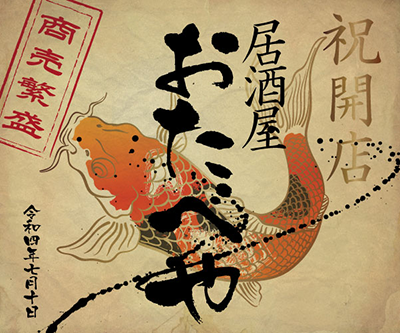 祝開店
居酒屋
おたべや
商売繁盛
令和四年七月十日